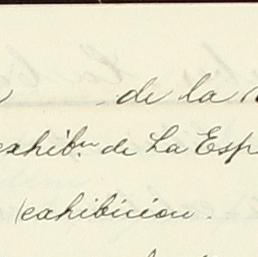 de la
exhibⁿ de La Esp
(exhibicion.